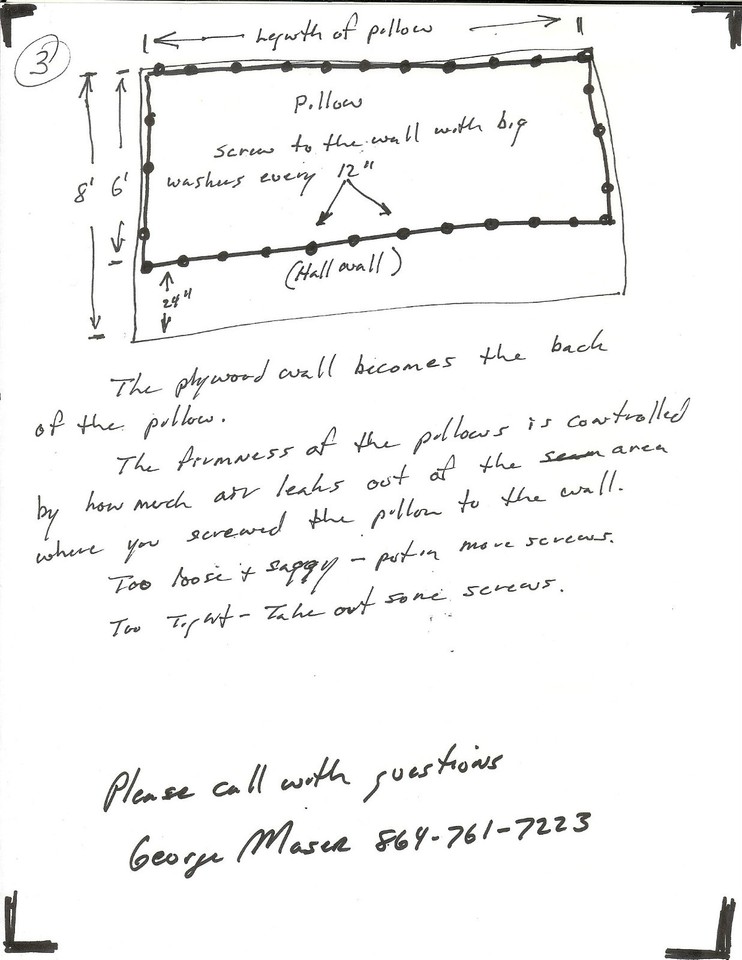 3
Length of pillow
Pillow
screw to the wall with big
washers every 12"
8'
6'
(Hall wall)
24"
The plywood wall becomes the back
of the pillow.
The firmness of the pillows is controlled
by how much air leaks out of the seam area
where you screwed the pillow to the wall.
Too loose + saggy - put in more screws.
Too Tight - Take out some screws.
Please call with questions
George Maser 864-761-7223